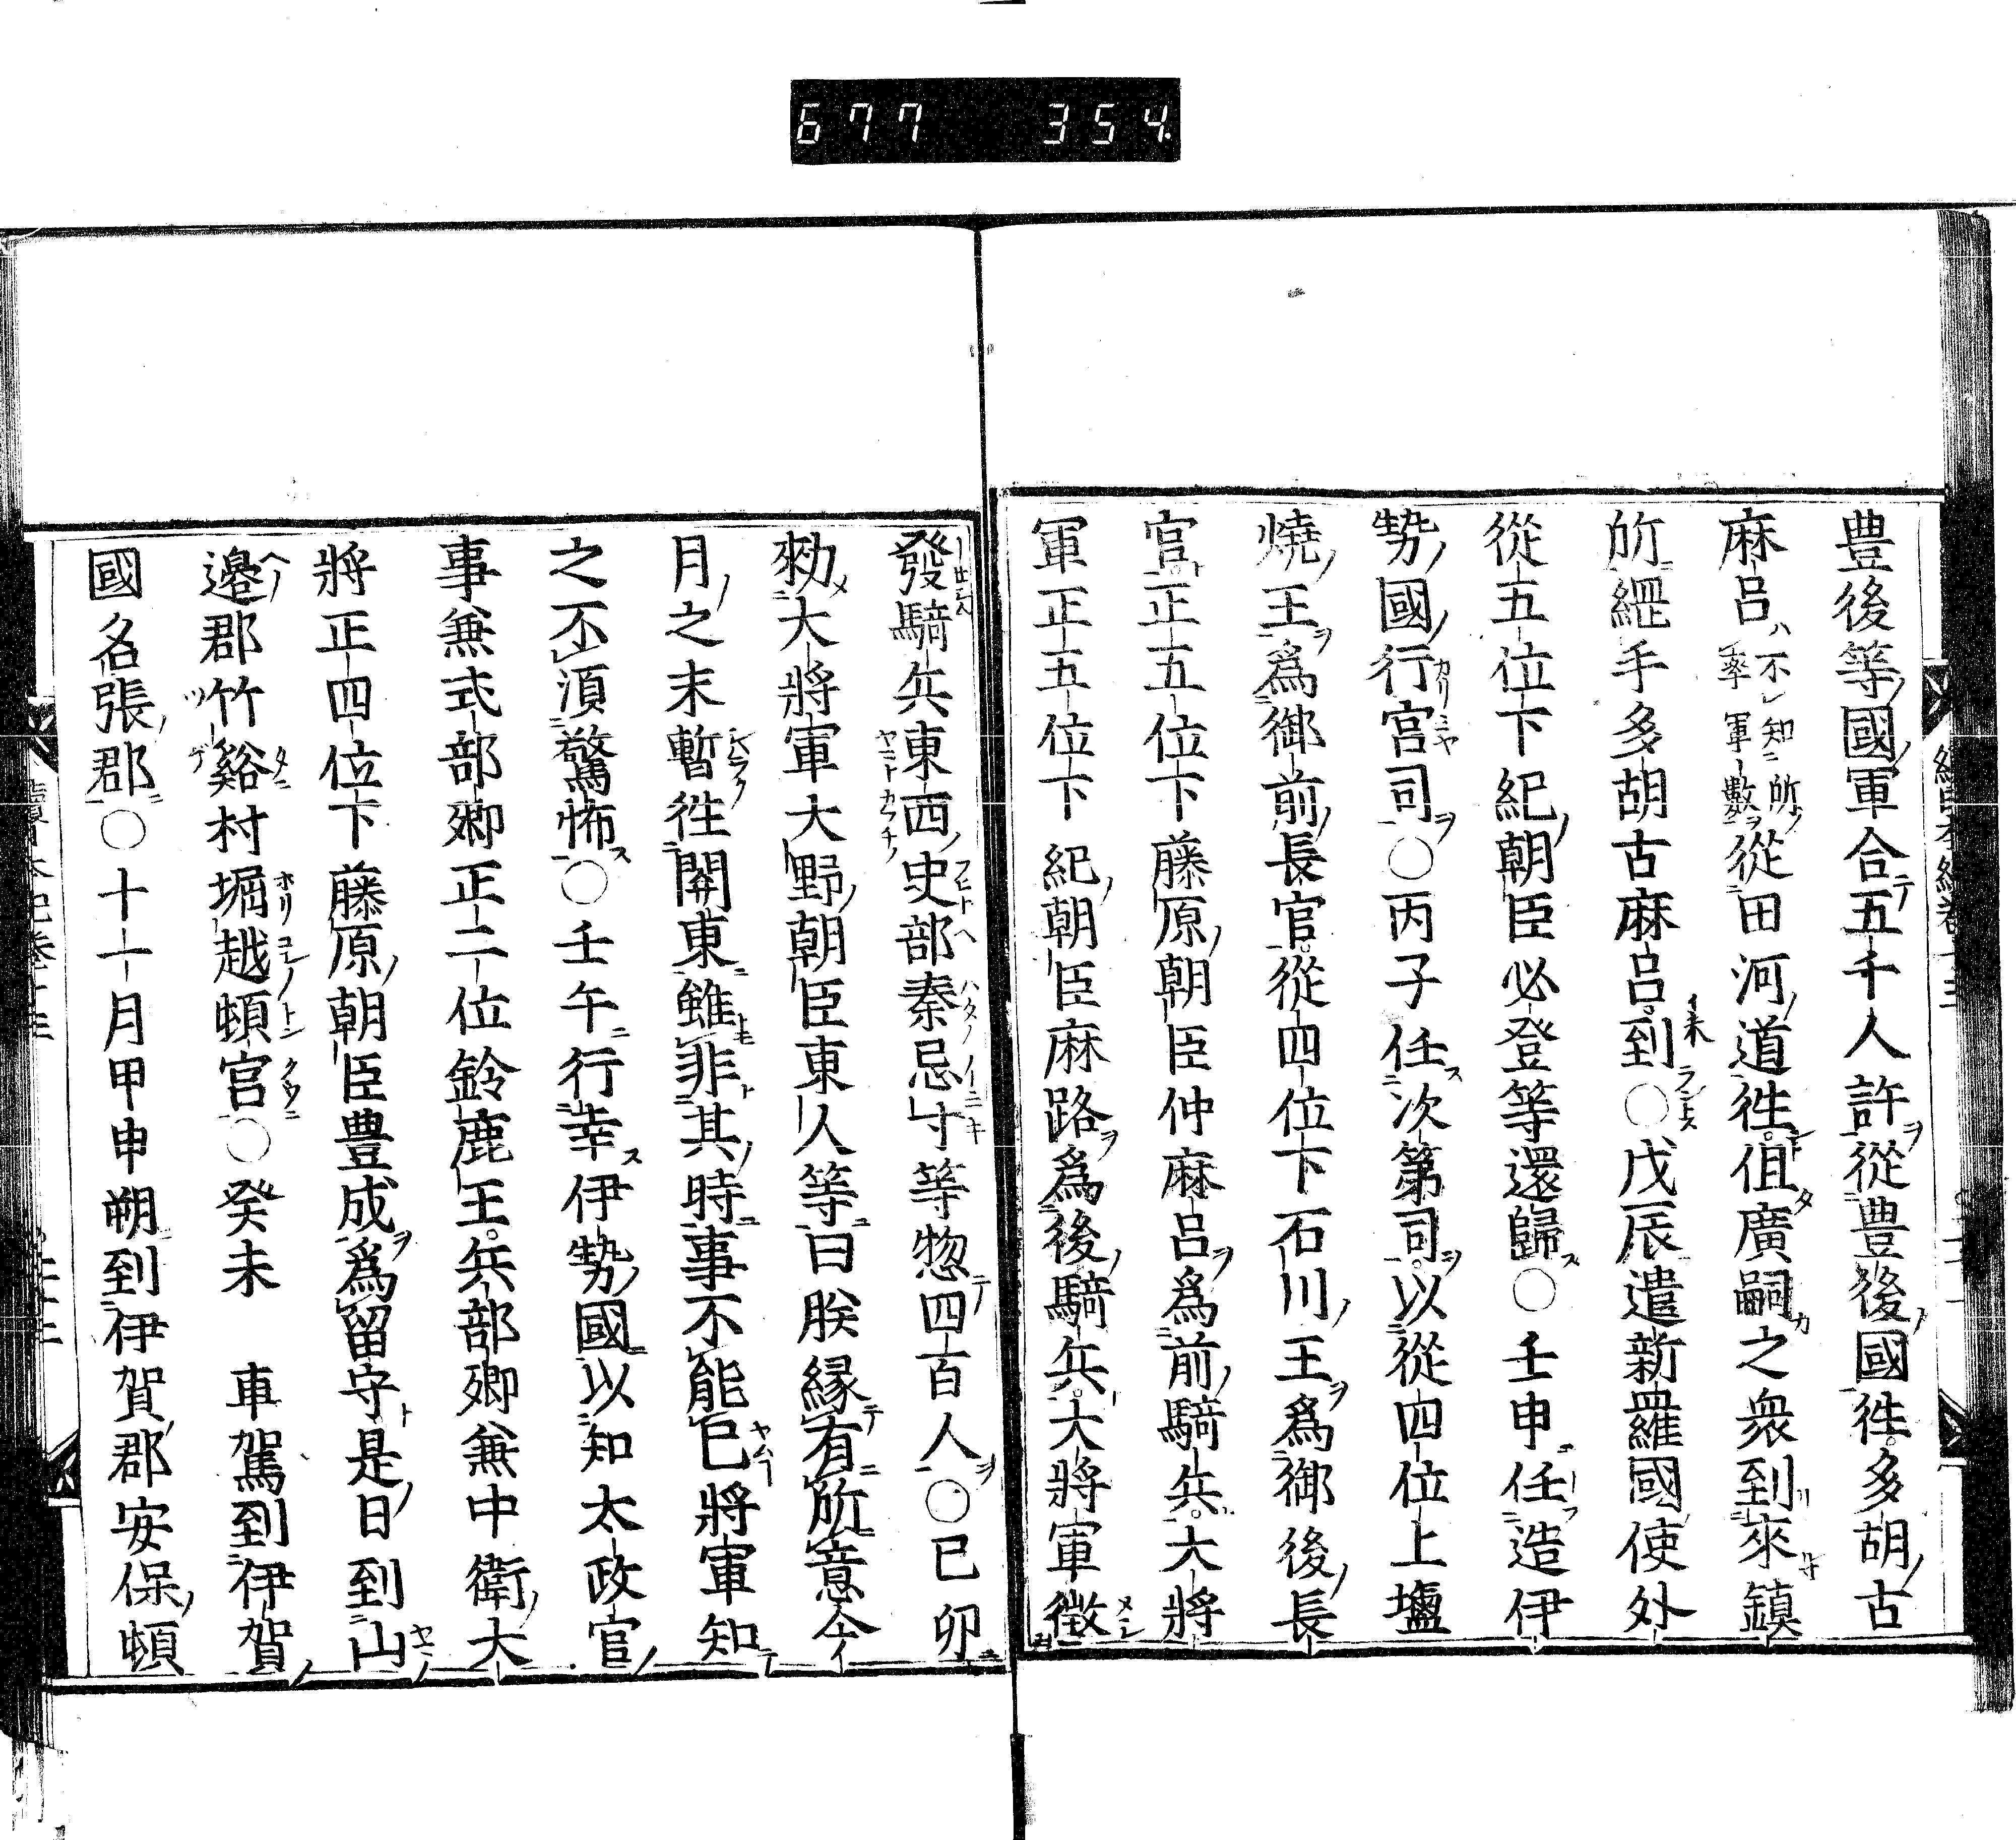 677 354
豊後等國軍合五千人許從豊後國徃多胡古
麻呂不知所率軍數從田河道徃但廣嗣之衆到來鎮
所綱手多胡古麻呂到○戊辰遣新羅國使外
從五位下紀朝臣必登等還歸○壬申任造伊
勢國行宮司○丙子任次第司以從四位上塩
燒王爲御前長官從四位下石川王爲御後長
官正五位下藤原朝臣仲麻呂爲前騎兵大將
軍正五位下紀朝臣麻路爲後騎兵大將軍徴
發騎兵東西史部秦忌寸等惣四百人○已卯
勑大將軍大野朝臣東人等曰朕縁有所意今
月之末暫徃關東雖非其時事不能已將軍知
之不須驚怖○壬午行幸伊勢國以知太政官
事兼式部卿正二位鈴鹿王兵部卿兼中衛大
將正四位下藤原朝臣豊成爲留守是日到山
邊郡竹谿村堀越頓宮○癸未 車駕到伊賀
國名張郡○十一月甲申朔到伊賀郡安保頓